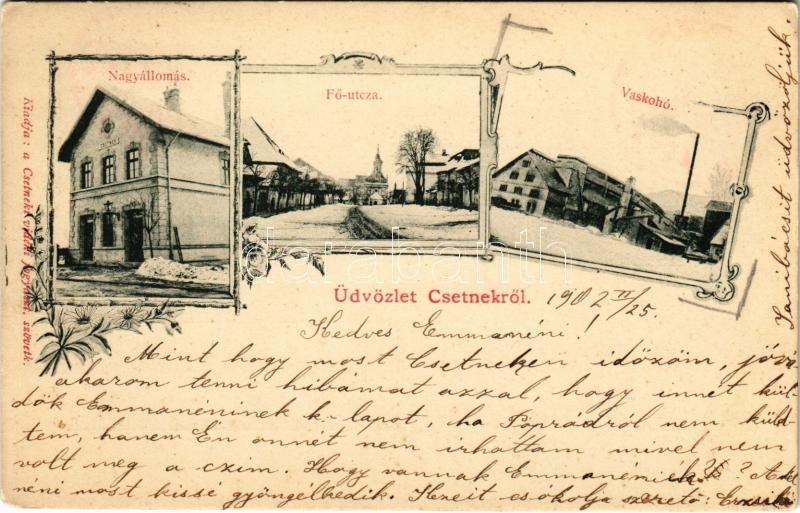 Nagyállomás.
Fő-utcza.
Vaskohó.
Kiadja: a Csetneki
szövetk.
Üdvözlet Csetnekről.
1902 II/25.
Kedves Emmanéni!
Mint hogy most Csetneken időzöm, jóvá
akarom tenni hibámat azzal, hogy innet kül-
dök Emmanéninek k-lapot, ha Poprádról nem küld-
tem, hanem Én onnét nem irhattam mivel nem
volt meg a czim. Hogy vannak Emmanéniék?
néni most kissé gyöngelkedik. Kezeit csókolja szerető:
Sanibácsit üdvözöljük.
darabanth